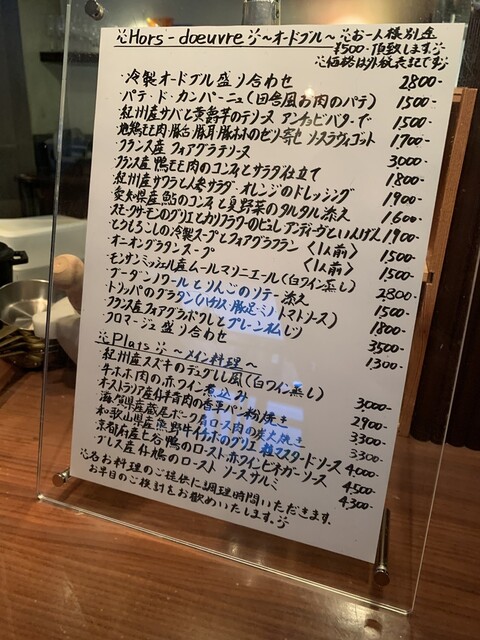 Hors-doeuvre ～オードブル～ お一人様別途
¥500-頂致します。
価格は外税表記です
・冷製オードブル盛り合わせ 2800-
・パテ・ド・カンパーニュ(田舎風お肉のパテ) 1500-
・紀州産サバと黄爵芋のテリーヌ アンチョビバターで 1500-
・地鶏モモ肉・豚舌・豚耳・豚ホホのゼリー寄せ ソースラヴィゴット 1700-
・フランス産 フォアグラテリーヌ 3000-
・フランス産 鴨モモ肉のコンフィとサラダ仕立て 1800-
・紀州産サワラと人参サラダ・オレンジのドレッシング 1900-
・愛知県産 鮎のコンフィと夏野菜のタルタル添え 1600-
・スモークサーモンのグリエとカリフラワーのピュレ アンディーヴといんげん 1900-
・とうもろこしの冷製スープとフォアグラフラン 〈1人前〉 1500-
・オニオングラタンスープ 〈1人前〉 1500-
・モンサンミッシェル産ムールマリニエール(白ワイン蒸し) 2800-
・ブーダンノワールとりんごのソテー添え 1500-
・トリッパのグラタン(ハチノス・豚足・ミノ トマトソース) 1800-
・フランス産フォアグラポワレと 3500-
・フロマージュ盛り合わせ 1300-
Plats ～メイン料理～
・紀州産スズキのデュグレレ風(白ワイン蒸し) 3000-
・牛ホホ肉の赤ワイン煮込み 2900-
・オーストラリア産仔羊背肉の香草パン粉焼き 3300-
・滋賀県産蔵尾ポーク肩ロース肉の炭火焼き 3300-
・和歌山県産熊野牛イチボのグリエ 粒マスタードソース 4000-
・京都府産七谷鴨のロースト 赤ワインビネガーソース 4500-
・ブレス産仔鳩のロースト ソースサルミ 4300-
各お料理のご提供に調理時間いただきます。
お早目のご検討をお勧めいたします。